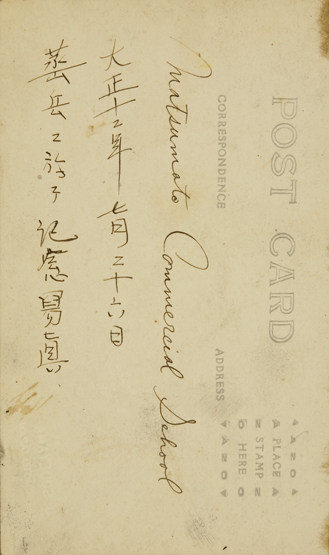 POST CARD
CORRESPONDENCE
ADDRESS
AZO
PLACE
STAMP
HERE
AZO
Matsumoto Commercial School
大正十二年七月二十六日
燕岳ニ於テ 記念寫真